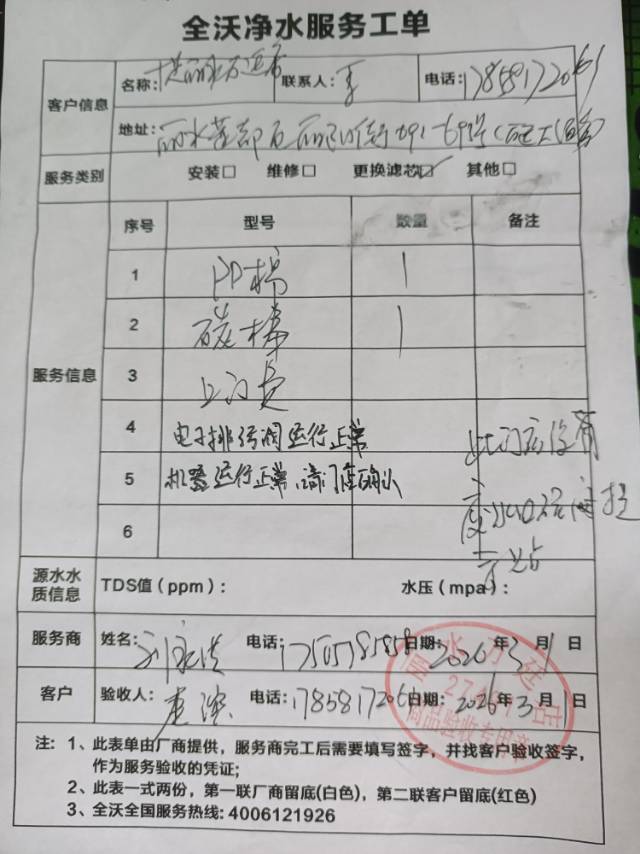 全沃净水服务工单
客户信息
名称: 联系人: 李 电话: 17858172061
地址: 丽水莲都区
服务类别 安装□ 维修□ 更换滤芯☑ 其他□
服务信息
序号 型号 数量 备注
1 PP棉 1
2 碳棒 1
3 上门费
4 电子排污阀运行正常
5 机器运行正常,请门店确认
6
此门店没有
源水水质信息 TDS值(ppm): 水压(mpa):
服务商 姓名: 电话: 17505785858 日期: 2026年3月1日
客户 验收人: 电话: 17858172061 日期: 2026年3月1日
商品验收专用章
注: 1、此表单由厂商提供,服务商完工后需要填写签字,并找客户验收签字,
作为服务验收的凭证;
2、此表一式两份,第一联厂商留底(白色),第二联客户留底(红色)
3、全沃全国服务热线: 4006121926